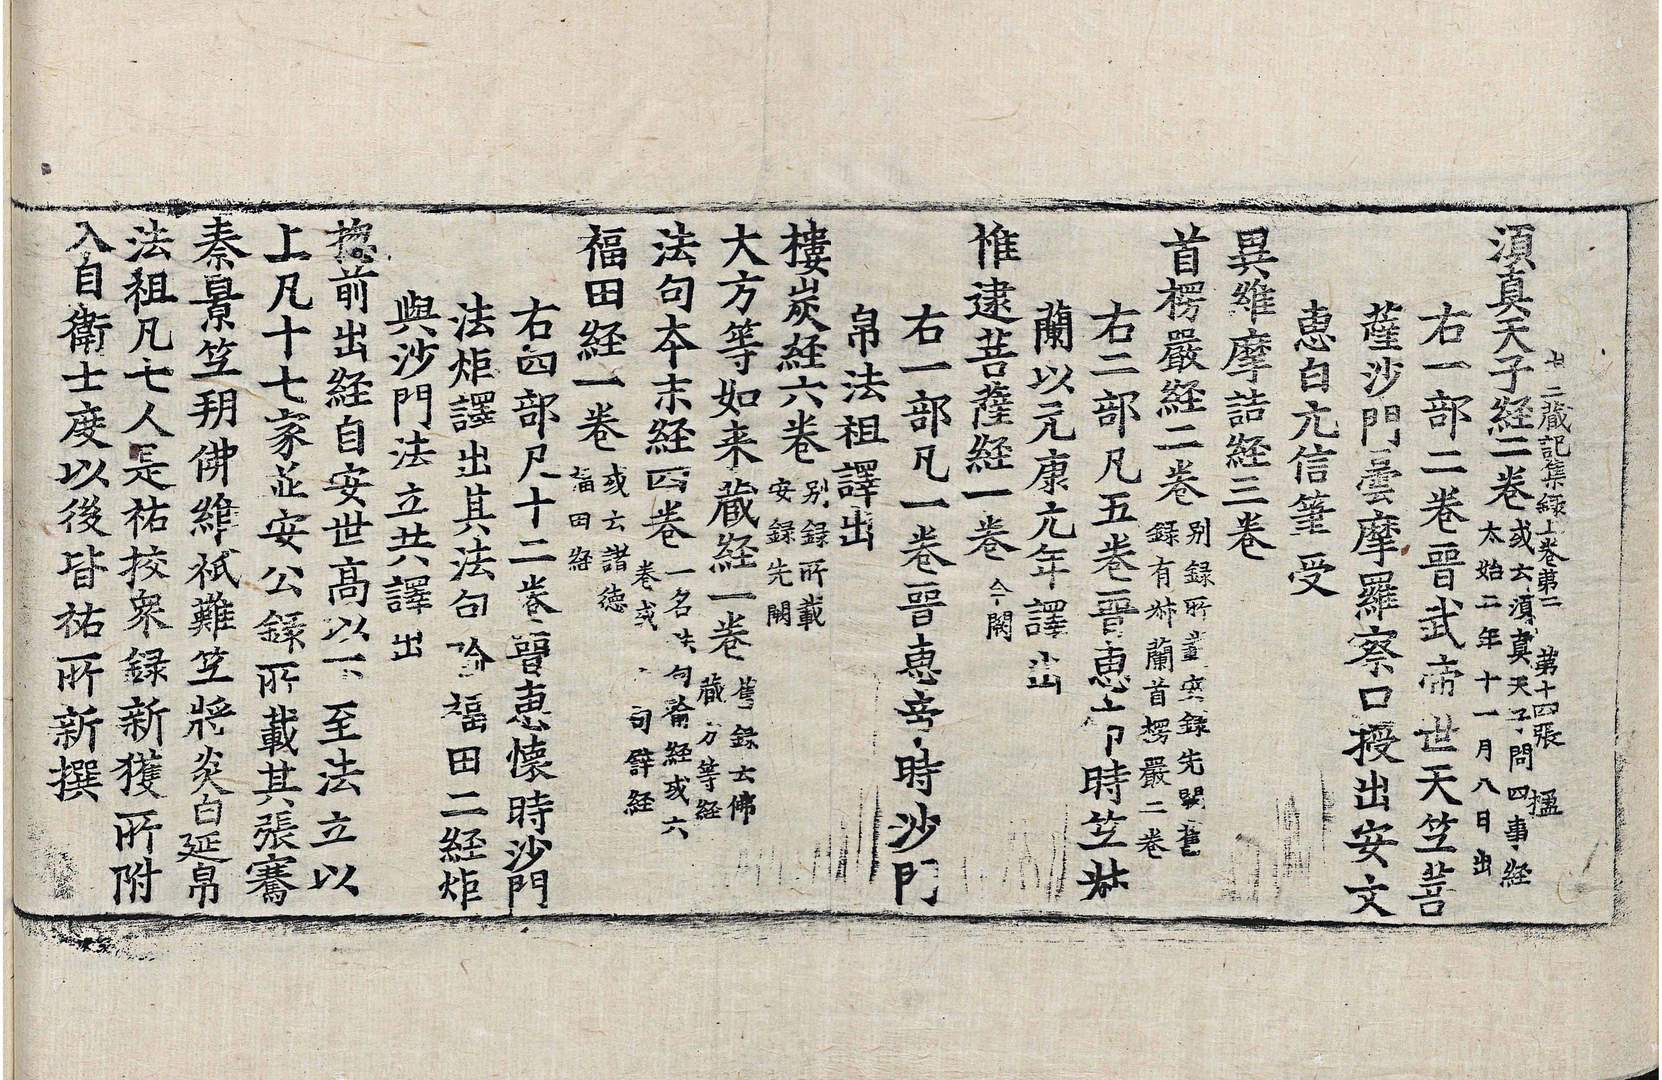 出三藏記集錄上卷第二 第十四張 楹
須真天子經二卷 或云須真天子問四事經 太始二年十一月八日出
右一部二卷晉武帝世天竺菩
薩沙門曇摩羅察口授出安文
惠白元信筆受
異維摩詰經三卷
首楞嚴経二卷 别録所載安録先闕舊 録有叔蘭首楞嚴二卷
右二部凡五卷晉惠帝時竺叔
蘭以元康元年譯出
惟逮菩薩経一卷 今闕
右一部凡一卷晉惠帝時沙門
帛法祖譯出
樓炭経六卷 别録所載 安録先闕
大方等如来藏経一卷 舊録云佛 藏方等経
法句本末経四卷 一名法句喻経或六 卷或云法句譬経
福田経一卷 或云諸德 福田経
右四部凡十二卷晉惠懐時沙門
法炬譯出其法句喻福田二経炬
與沙門法立共譯出
揔前出経自安世高以下至法立以
上凡十七家並安公錄所載其張騫
秦景竺朔佛維祇難竺將炎白延帛
法祖凡七人是祐挍衆録新獲所附
入自衛士度以後皆祐所新撰